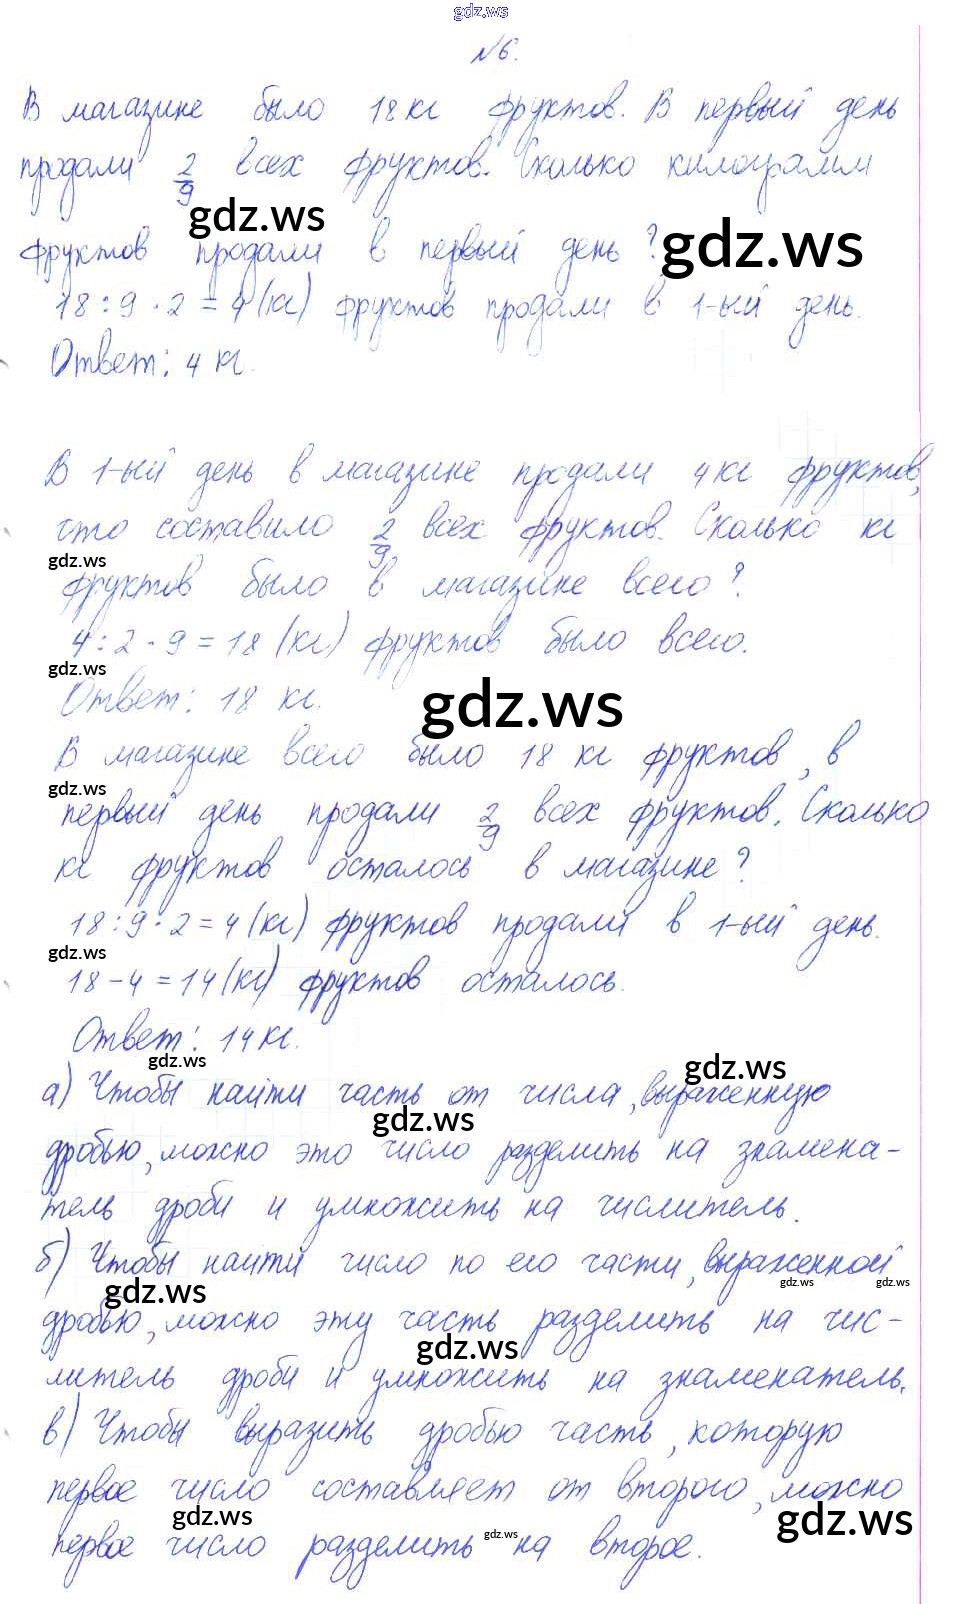 gdz.ws
№6.
В магазине было 18 кг фруктов. В первый день
продали 2/9 всех фруктов. Сколько килограмм
gdz.ws
gdz.ws
фруктов продали в первый день?
18 : 9 · 2 = 4 (кг) фруктов продали в 1-ый день.
Ответ: 4 кг.
В 1-ый день в магазине продали 4 кг фруктов,
что составило 2/9 всех фруктов. Сколько кг
gdz.ws
фруктов было в магазине всего?
4 : 2 · 9 = 18 (кг) фруктов было всего.
gdz.ws
Ответ: 18 кг.
gdz.ws
В магазине всего было 18 кг фруктов, в
gdz.ws
первый день продали 2/9 всех фруктов. Сколько
кг фруктов осталось в магазине?
18 : 9 · 2 = 4 (кг) фруктов продали в 1-ый день.
gdz.ws
18 - 4 = 14 (кг) фруктов осталось.
Ответ: 14 кг.
gdz.ws
gdz.ws
а) Чтобы найти часть от числа, выраженную
gdz.ws
дробью, можно это число разделить на знамена-
тель дроби и умножить на числитель.
б) Чтобы найти число по его части, выраженной
gdz.ws
gdz.ws
gdz.ws
дробью, можно эту часть разделить на чис-
gdz.ws
литель дроби и умножить на знаменатель.
в) Чтобы выразить дробью часть, которую
первое число составляет от второго, можно
gdz.ws
gdz.ws
gdz.ws
первое число разделить на второе.